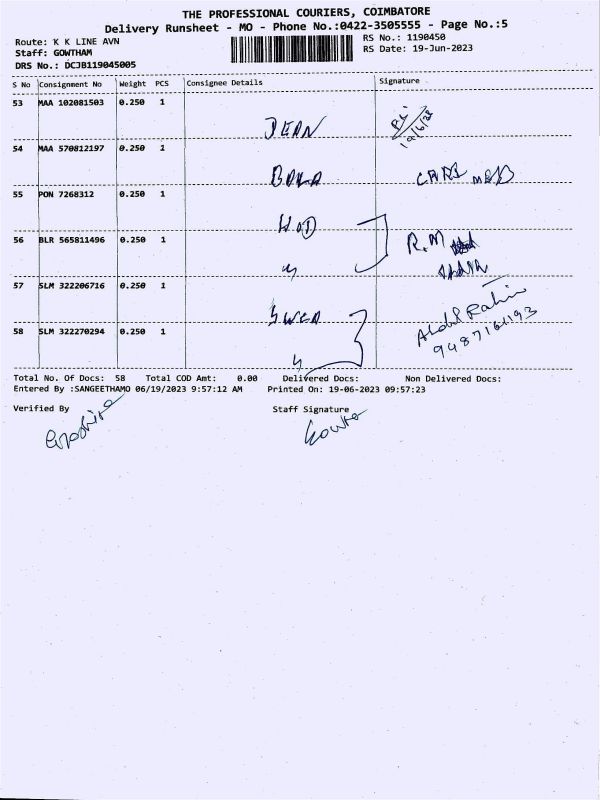 THE PROFESSIONAL COURIERS, COIMBATORE
Delivery Runsheet - MO - Phone No.:0422-3505555 - Page No.:5
Route: K K LINE AVN
RS No.: 1190450
Staff: GOWTHAM
RS Date: 19-Jun-2023
DRS No.: DCJB119045005
S No Consignment No Weight PCS Consignee Details Signature
53 MAA 102081503 0.250 1
DEAN
19/6/23
54 MAA 570812197 0.250 1
55 PON 7268312 0.250 1
HOD
56 BLR 565811496 0.250 1
R.M
57 SLM 322206716 0.250 1
Abdul Rahim
58 SLM 322270294 0.250 1
9487161193
Total No. Of Docs: 58 Total COD Amt: 0.00 Delivered Docs: Non Delivered Docs:
Entered By :SANGEETHAMO 06/19/2023 9:57:12 AM Printed On: 19-06-2023 09:57:23
Verified By Staff Signature